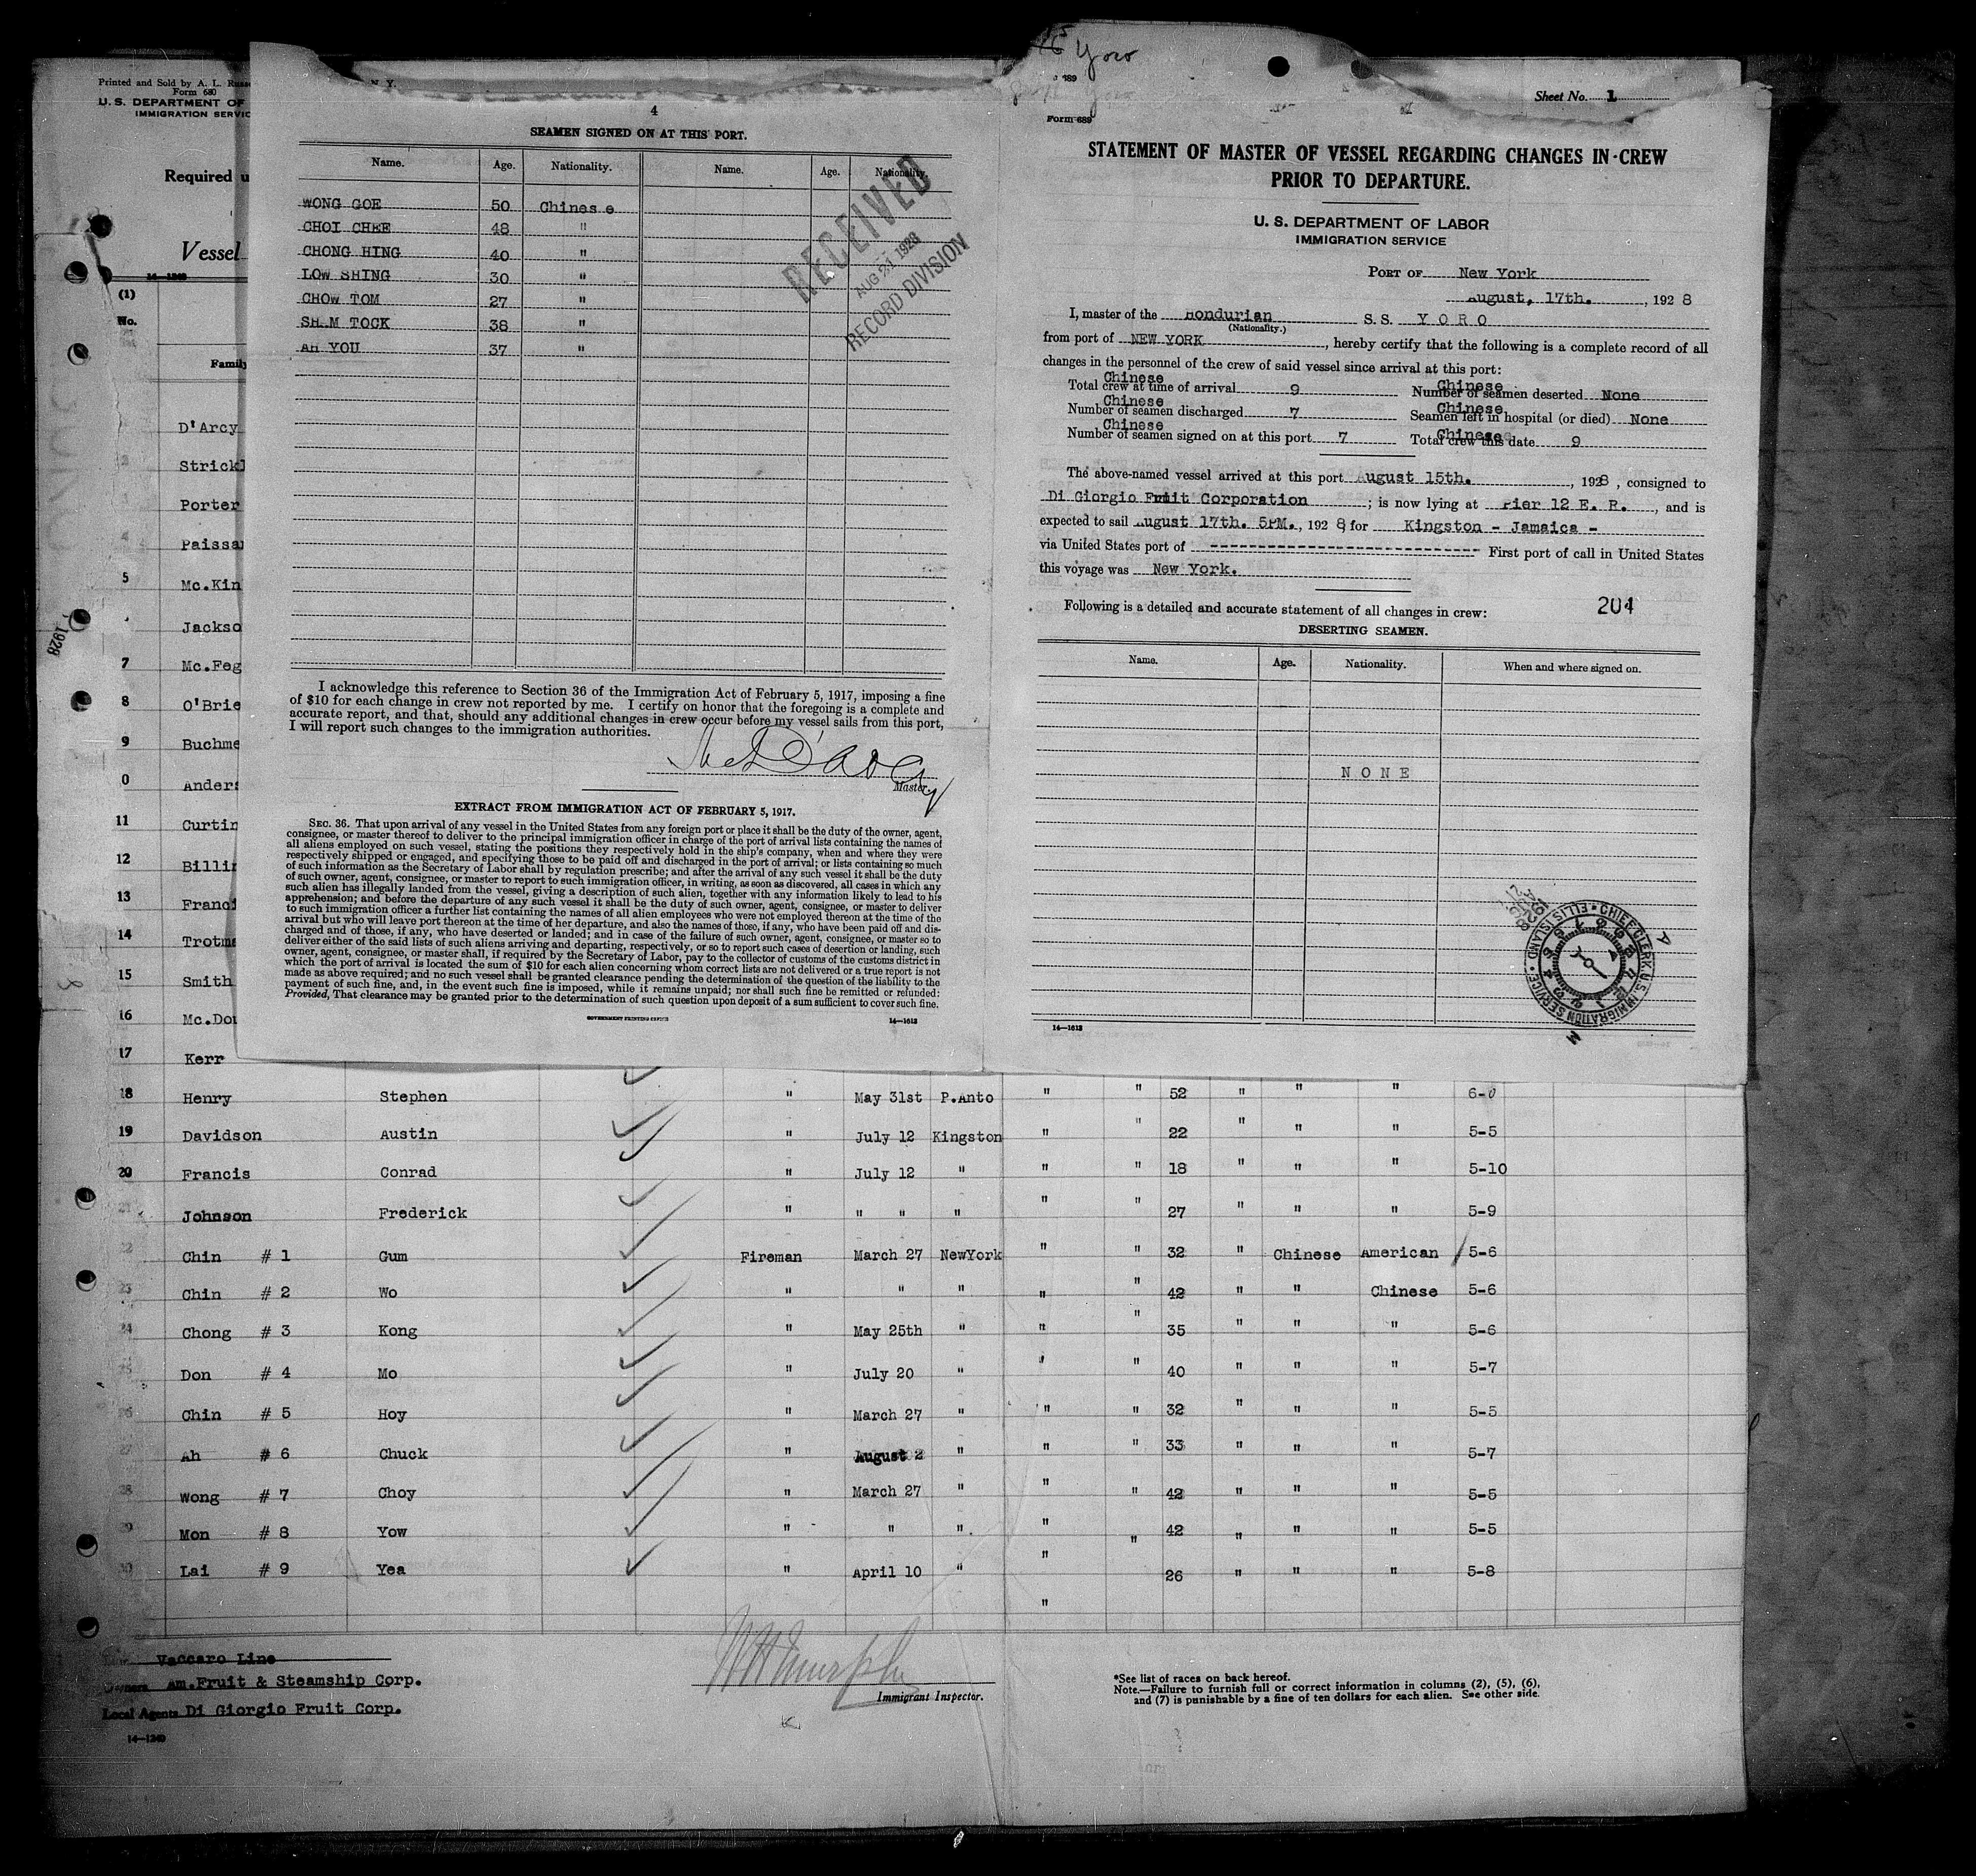 Printed and Sold by A. L. Russe
N. Y.
Form 680
U. S. DEPARTMENT OF
IMMIGRATION SERVIC
Required u
Vessel
14—1240
(1)
No.
Family
D'Arcy
Strickl
Porter
Paissa
5 Mc.Kin
Jackso
7 Mc.Feg
8 O'Brie
9 Buchme
0 Anders
11 Curtin
12 Billin
13 Franci
14 Trotma
15 Smith
16 Mc.Dou
17 Kerr
1928
4
SEAMEN SIGNED ON AT THIS PORT.
Name. Age. Nationality. Name. Age. Nationality.
WONG GOE 50 Chinese
CHOI CHEE 48 "
CHONG HING 40 "
LOW SHING 30 "
CHOW TOM 27 "
SHAM TOCK 38 "
AH YOU 37 "
RECEIVED
AUG 21 1928
RECORD DIVISION
I acknowledge this reference to Section 36 of the Immigration Act of February 5, 1917, imposing a fine
of $10 for each change in crew not reported by me. I certify on honor that the foregoing is a complete and
accurate report, and that, should any additional changes in crew occur before my vessel sails from this port,
I will report such changes to the immigration authorities.
D'Arcy
Master.
EXTRACT FROM IMMIGRATION ACT OF FEBRUARY 5, 1917.
SEC. 36. That upon arrival of any vessel in the United States from any foreign port or place it shall be the duty of the owner, agent,
consignee, or master thereof to deliver to the principal immigration officer in charge of the port of arrival lists containing the names of
all aliens employed on such vessel, stating the positions they respectively hold in the ship's company, when and where they were
respectively shipped or engaged, and specifying those to be paid off and discharged in the port of arrival; or lists containing so much
of such information as the Secretary of Labor shall by regulation prescribe; and after the arrival of any such vessel it shall be the duty
of such owner, agent, consignee, or master to report to such immigration officer, in writing, as soon as discovered, all cases in which any
such alien has illegally landed from the vessel, giving a description of such alien, together with any information likely to lead to his
apprehension; and before the departure of any such vessel it shall be the duty of such owner, agent, consignee, or master to deliver
to such immigration officer a further list containing the names of all alien employees who were not employed thereon at the time of the
arrival but who will leave port thereon at the time of her departure, and also the names of those, if any, who have been paid off and dis-
charged and of those, if any, who have deserted or landed; and in case of the failure of such owner, agent, consignee, or master so to
deliver either of the said lists of such aliens arriving and departing, respectively, or so to report such cases of desertion or landing, such
owner, agent, consignee, or master shall, if required by the Secretary of Labor, pay to the collector of customs of the customs district in
which the port of arrival is located the sum of $10 for each alien concerning whom correct lists are not delivered or a true report is not
made as above required; and no such vessel shall be granted clearance pending the determination of the question of the liability to the
payment of such fine, and, in the event such fine is imposed, while it remains unpaid; nor shall such fine be remitted or refunded:
Provided, That clearance may be granted prior to the determination of such question upon deposit of a sum sufficient to cover such fine.
GOVERNMENT PRINTING OFFICE 14—1613
Yoro
689
Sheet No. 1
Form 689
STATEMENT OF MASTER OF VESSEL REGARDING CHANGES IN CREW
PRIOR TO DEPARTURE.
U. S. DEPARTMENT OF LABOR
IMMIGRATION SERVICE
PORT OF New York
August, 17th. , 1928
I, master of the Hondurian S. S. Y O R O
(Nationality.)
from port of NEW YORK , hereby certify that the following is a complete record of all
changes in the personnel of the crew of said vessel since arrival at this port:
Chinese Chinese
Total crew at time of arrival 9 Number of seamen deserted None
Chinese Chinese
Number of seamen discharged 7 Seamen left in hospital (or died) None
Chinese Chinese
Number of seamen signed on at this port 7 Total crew this date 9
The above-named vessel arrived at this port August 15th. , 1928 , consigned to
Di Giorgio Fruit Corporation ; is now lying at Pier 12 E. R. , and is
expected to sail August 17th. 5PM. , 1928 for Kingston - Jamaica -
via United States port of ------------------------------ First port of call in United States
this voyage was New York.
Following is a detailed and accurate statement of all changes in crew: 204
DESERTING SEAMEN.
Name. Age. Nationality. When and where signed on.
N O N E
CHIEF CLERK, U.S. IMMIGRATION SERVICE • ELLIS ISLAND •
14—1613
18 Henry Stephen " May 31st P.Anto " " 52 " " " 6-0
19 Davidson Austin " July 12 Kingston " " 22 " " " 5-5
20 Francis Conrad " July 12 " " " 18 " " " 5-10
21 Johnson Frederick " " " " " " 27 " " " 5-9
22 Chin # 1 Gum Fireman March 27 NewYork " " 32 " Chinese American 5-6
23 Chin # 2 Wo " " " " " 42 " " Chinese 5-6
24 Chong # 3 Kong " May 25th " " " 35 " " " 5-6
25 Don # 4 Mo " July 20 " " " 40 " " " 5-7
26 Chin # 5 Hoy " March 27 " " " 32 " " " 5-5
27 Ah # 6 Chuck " August 2 " " " 33 " " " 5-7
28 Wong # 7 Choy " March 27 " " " 42 " " " 5-5
29 Mon # 8 Yow " " " " " 42 " " " 5-5
30 Lai # 9 Yea " April 10 " " 26 " " " 5-8
"
Vaccaro Line
Owners Am.Fruit & Steamship Corp.
Local Agents Di Giorgio Fruit Corp.
14—1240
Murphy
Immigrant Inspector.
*See list of races on back hereof.
Note.—Failure to furnish full or correct information in columns (2), (5), (6),
and (7) is punishable by a fine of ten dollars for each alien. See other side.